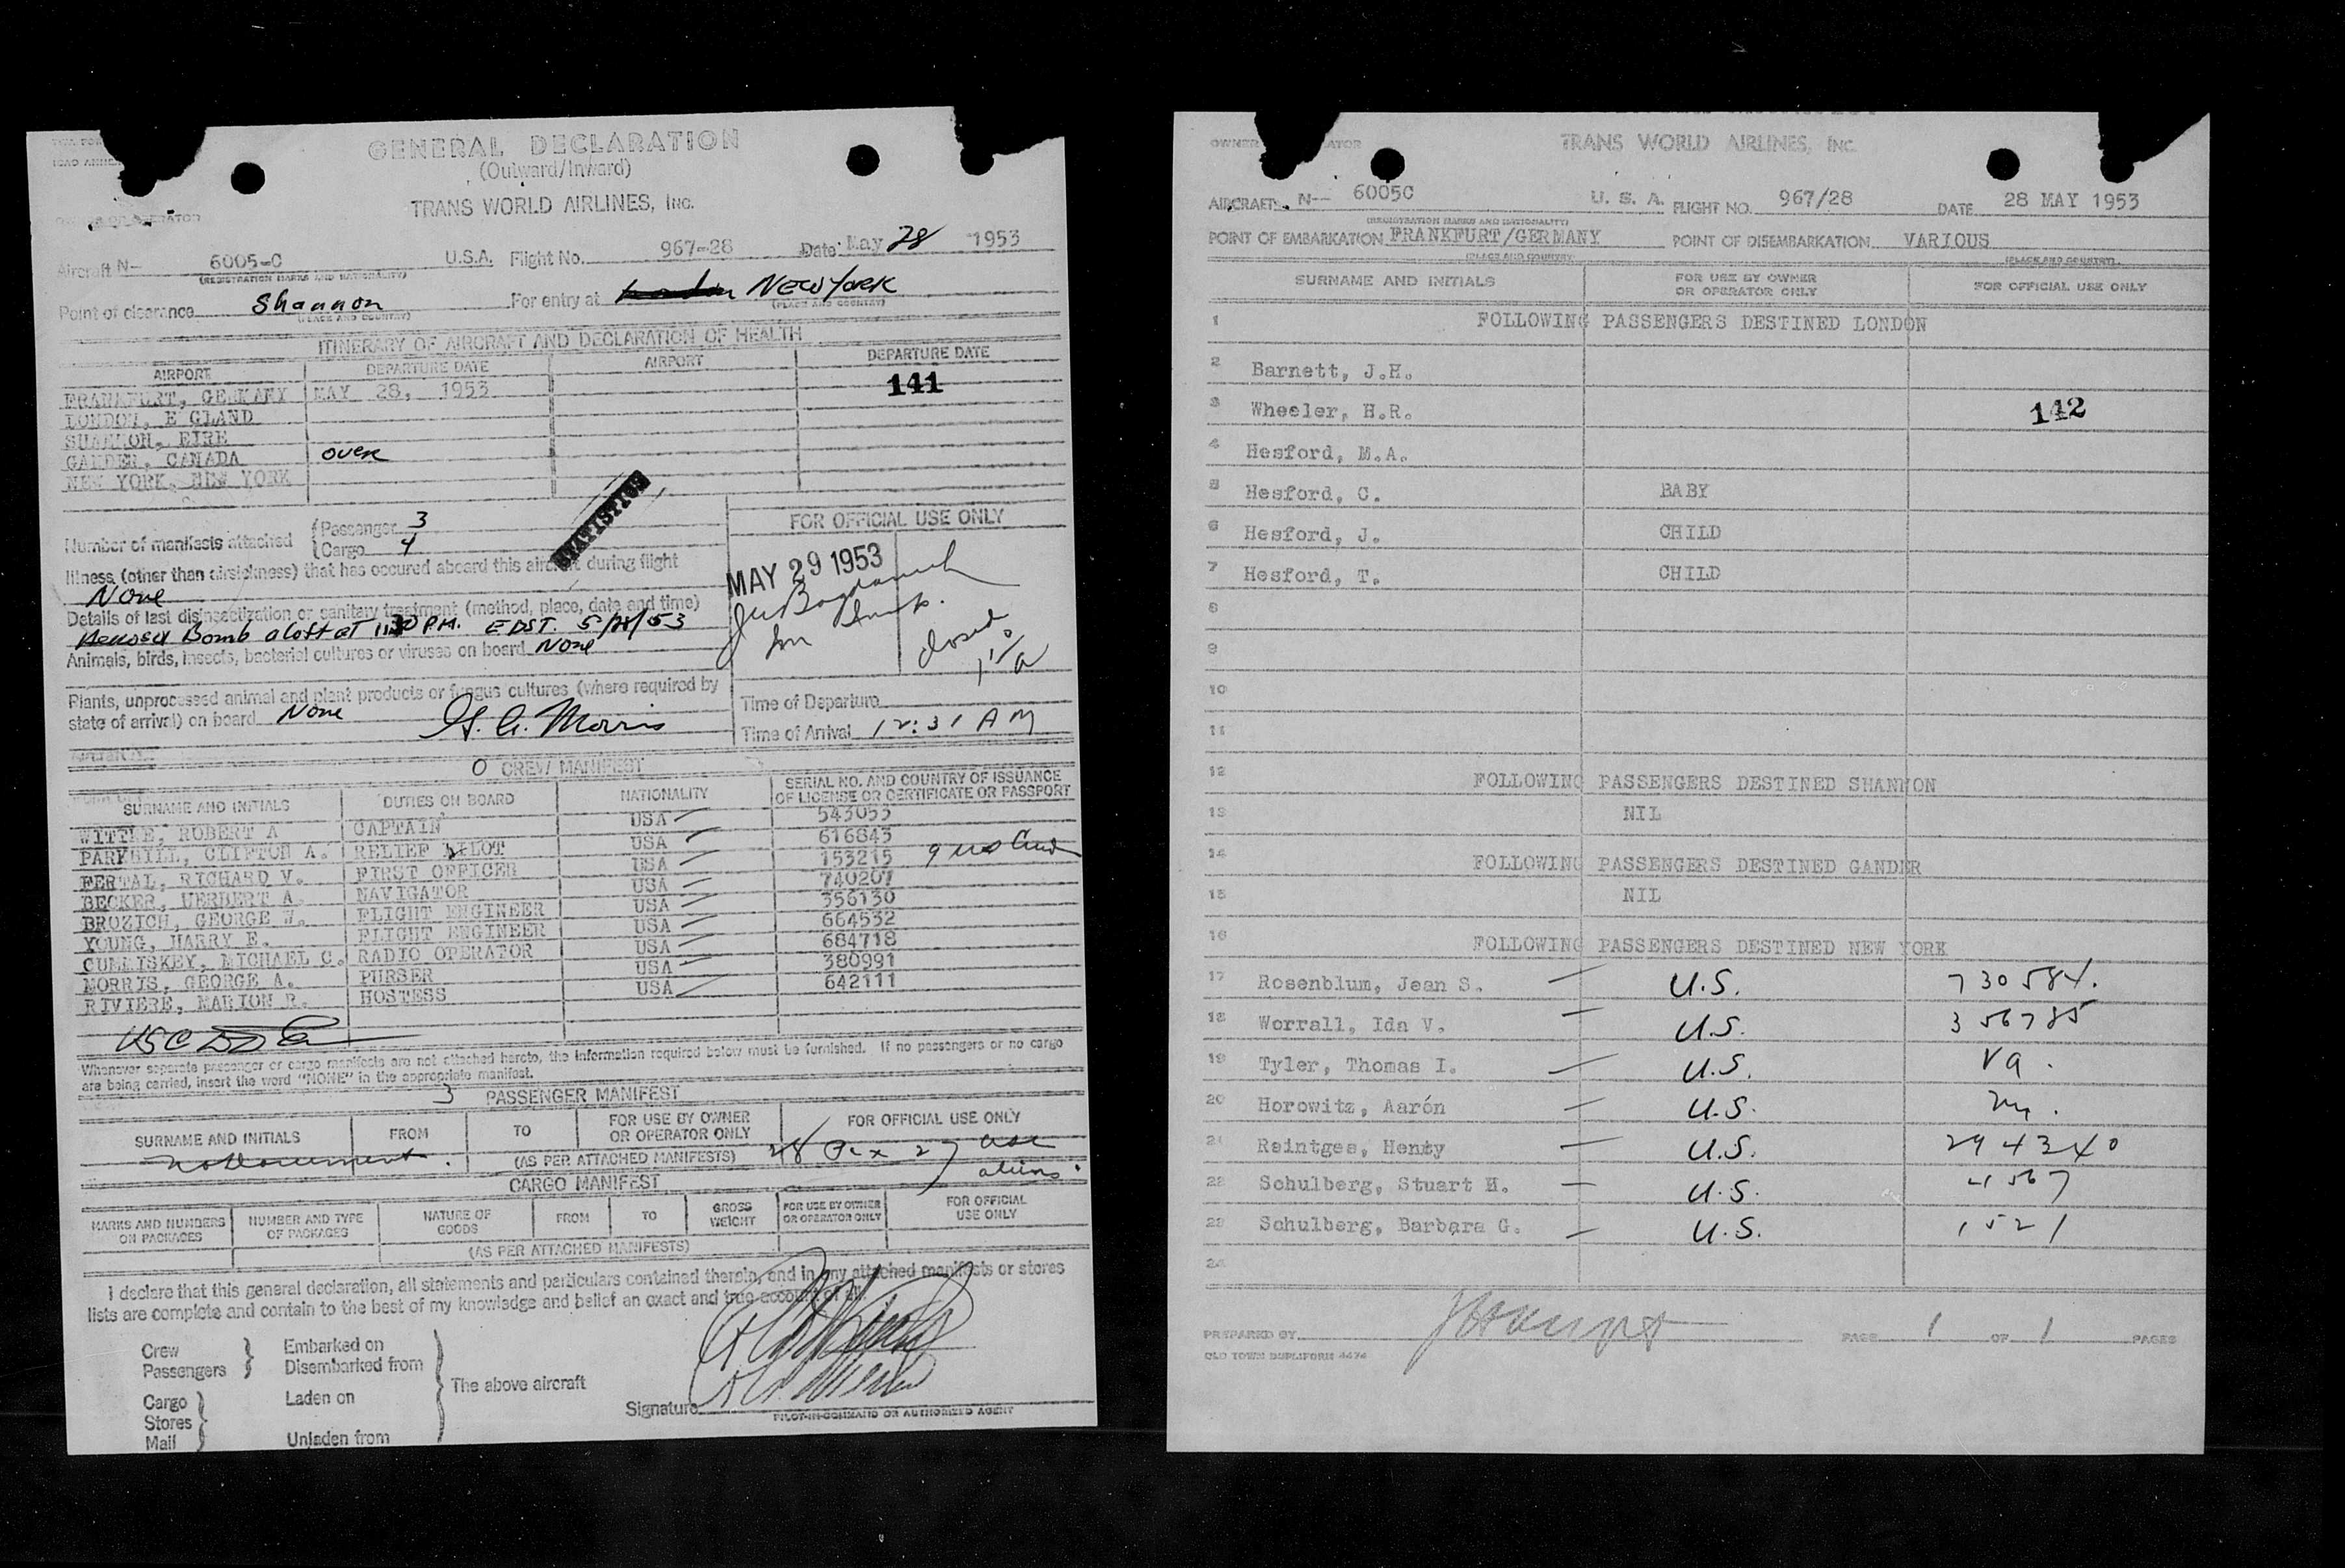 GENERAL DECLARATION
(Outward/Inward)
TRANS WORLD AIRLINES, INC.
Aircraft N- 6005-C U.S.A. Flight No. 967-28 Date May 28 1953
(REGISTRATION MARKS AND NATIONALITY)
Point of clearance Shannon For entry at London New York
(PLACE AND COUNTRY) (PLACE AND COUNTRY)
ITINERARY OF AIRCRAFT AND DECLARATION OF HEALTH
AIRPORT DEPARTURE DATE AIRPORT DEPARTURE DATE
FRANKFURT, GERMANY MAY 28, 1953 141
LONDON, E GLAND
SHANNON, EIRE
GANDER, CANADA over
NEW YORK, NEW YORK
STATISTICS
Number of manifests attached
Passenger 3
Cargo 4
Illness (other than airsickness) that has occured aboard this aircraft during flight
None
Details of last disinsectization or sanitary treatment (method, place, date and time)
Aerosol Bomb aloft at 1130 P.M. EDST. 5/28/53
Animals, birds, insects, bacterial cultures or viruses on board None
Plants, unprocessed animal and plant products or fungus cultures (where required by
state of arrival) on board None G. A. Morris
FOR OFFICIAL USE ONLY
MAY 29 1953
closed
Time of Departure
Time of Arrival 12:31 AM
O CREW MANIFEST
SURNAME AND INITIALS DUTIES ON BOARD NATIONALITY SERIAL NO. AND COUNTRY OF ISSUANCE OF LICENSE OR CERTIFICATE OR PASSPORT
WITTKE, ROBERT A CAPTAIN USA 543053
PARKHILL, CLIFTON A. RELIEF PILOT USA 616843
FERTAL, RICHARD V. FIRST OFFICER USA 153215
BECKER, HERBERT A. NAVIGATOR USA 740207
BROZICH, GEORGE W. FLIGHT ENGINEER USA 356130
YOUNG, HARRY E. FLIGHT ENGINEER USA 664532
CUMMISKEY, MICHAEL C. RADIO OPERATOR USA 684718
MORRIS, GEORGE A. PURSER USA 380991
RIVIERE, MARION R. HOSTESS USA 642111
USC
Whenever separate passenger or cargo manifests are not attached hereto, the information required below must be furnished. If no passengers or no cargo
are being carried, insert the word "NONE" in the appropriate manifest.
3 PASSENGER MANIFEST
SURNAME AND INITIALS FROM TO FOR USE BY OWNER OR OPERATOR ONLY FOR OFFICIAL USE ONLY
(AS PER ATTACHED MANIFESTS) 28 27 aliens
CARGO MANIFEST
MARKS AND NUMBERS ON PACKAGES NUMBER AND TYPE OF PACKAGES NATURE OF GOODS FROM TO GROSS WEIGHT FOR USE BY OWNER OR OPERATOR ONLY FOR OFFICIAL USE ONLY
(AS PER ATTACHED MANIFESTS)
I declare that this general declaration, all statements and particulars contained therein, and in any attached manifests or stores
lists are complete and contain to the best of my knowledge and belief an exact and true account of all
Crew Embarked on
Passengers Disembarked from
The above aircraft
Cargo Laden on
Stores
Mail Unladen from
Signature
PILOT-IN-COMMAND OR AUTHORIZED AGENT
OWNER TRANS WORLD AIRLINES, INC.
AIRCRAFT N-- 6005C U. S. A. FLIGHT NO. 967/28 DATE 28 MAY 1953
(REGISTRATION MARKS AND NATIONALITY)
POINT OF EMBARKATION FRANKFURT/GERMANY POINT OF DISEMBARKATION VARIOUS
(PLACE AND COUNTRY) (PLACE AND COUNTRY)
SURNAME AND INITIALS FOR USE BY OWNER OR OPERATOR ONLY FOR OFFICIAL USE ONLY
1 FOLLOWING PASSENGERS DESTINED LONDON
2 Barnett, J.H.
3 Wheeler, H.R. 142
4 Hesford, M.A.
5 Hesford, C. BABY
6 Hesford, J. CHILD
7 Hesford, T. CHILD
8
9
10
11
12 FOLLOWING PASSENGERS DESTINED SHANNON
13 NIL
14 FOLLOWING PASSENGERS DESTINED GANDER
15 NIL
16 FOLLOWING PASSENGERS DESTINED NEW YORK
17 Rosenblum, Jean S. — U.S. 730584.
18 Worrall, Ida V. — U.S. 356785
19 Tyler, Thomas I. — U.S. Va.
20 Horowitz, Aarón — U.S.
21 Reintges, Henry — U.S. 294340
22 Schulberg, Stuart H. — U.S. 4567
23 Schulberg, Barbara G. — U.S. 1521
24
PREPARED BY PAGE 1 OF 1 PAGES
OLD TOWN DUPLIFORM 4474